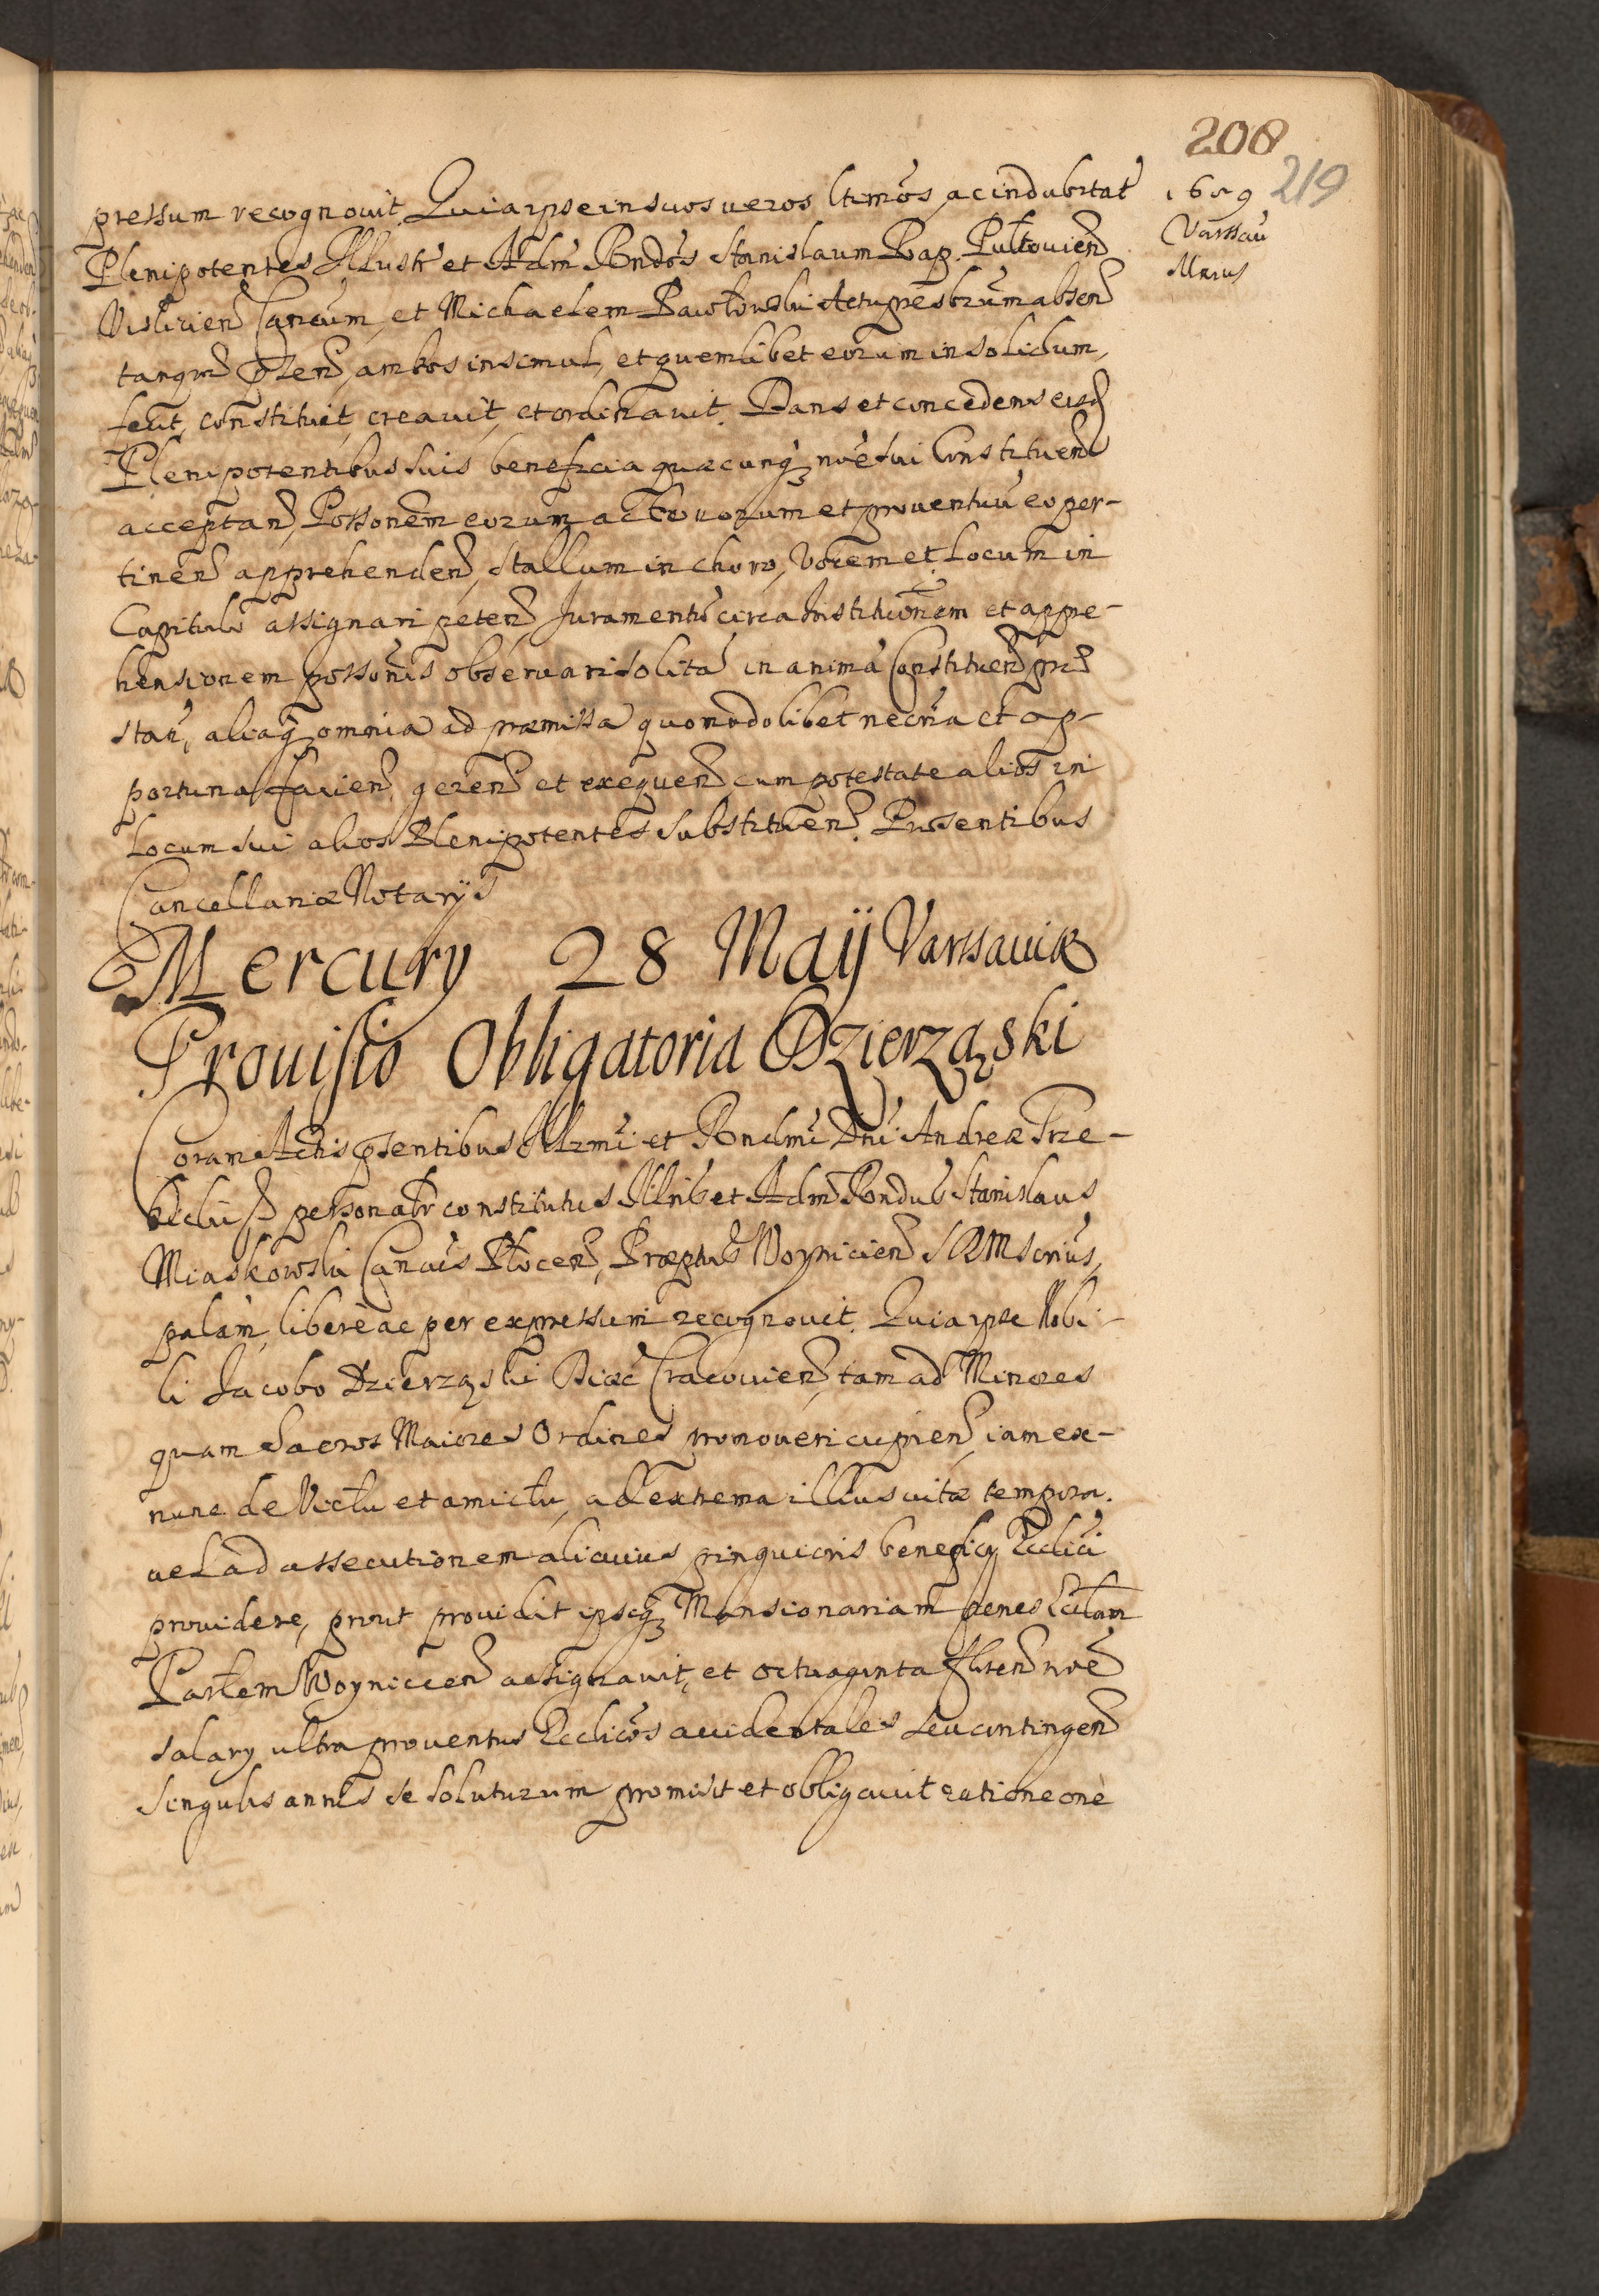 208
219
1659
Varssau
Maius
pressum recognouit. Quia ipse in suos ueros ltimos ac indubitat
Plenipotentes Illustr et Adm Rndos Stanislaum Pultouien
Visliciem Cancum, et Michaelem absen
tanqm pñten, ambos insimul, et quemlibet eorum in solidum,
fecit, constituit, creauit, et ordinauit. Dans et concedens eisd
Plenipotentibus suis beneficia quæcunq nõe sui Constituen
acceptan, Possonem eorum ac bonorum et prouentuu eo per-
tinen apprehenden, Stallum in choro, Vocem et Locum in
Capitulo assignari peten, Juramentu circa Institutionem et appre-
hensionem possonis obseruari solita in anima Constituen præ
stan, aliaq omnia ad præmissa quomodolibet necria et op-
portuna facien, geren et exequen, cum potestate alios in
Locum sui alios Plenipotentes substituen. Præsentibus
Cancellariæ Notarijs
Mercury 28 Maij Varssauiæ
Prouisio Obligatoria Dzierząski
Coram Actis pñtibus Illmi et Rndmi Dni Andreæ Trze-
bicki personalr constitutus Illris et Adm Rndus Stanislaus
Miaskowski Cancus Plocen, Præptus Woynicien S R M Scrius,
palam, libere ac per expressum recognouit. Quia ipse Nobi-
li Jacobo Dzierząski Diæc Cracouien, tam ad Minores
quam Sacros Maiores Ordines promoueri cupien, iam ex-
nunc de Victu et amictu, ad extrema illius uitæ tempora.
uel ad assecutionem alicuius pinguioris beneficy Ecclici
prouidere, prout prouidit ipseq Mansionariam penes Ecclam
Parlem Woyniccen assignauit, et octuaginta flren nõe
salary ultra prouentus Ecclicos accidentales seu contingen
singulis annis se soluturum promisit et obligauit ratione one